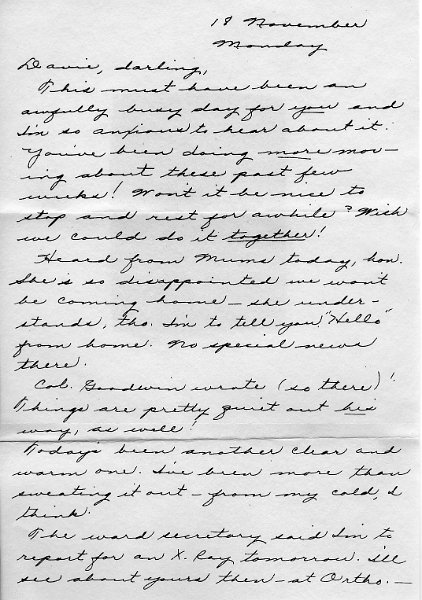 18 November
Monday
Davie, darling,
This must have been an
awfully busy day for you and
I'm so anxious to hear about it.
You've been doing more mov-
ing about these past few
weeks! Won't it be nice to
stop and rest for awhile? Wish
we could do it together!
Heard from Mums today, hon.
She is so disappointed we won't
be coming home - she under-
stands, tho. I'm to tell you "Hello"
from home. No special news
there.
Col. Goodwin wrote (so there)!
Things are pretty quiet out his
way, as well!
Today's been another clear and
warm one. I've been more than
sweating it out - from my cold, I
think.
The ward secretary said I'm to
report for an X-Ray tomorrow. I'll
see about yours then - at Ortho. -